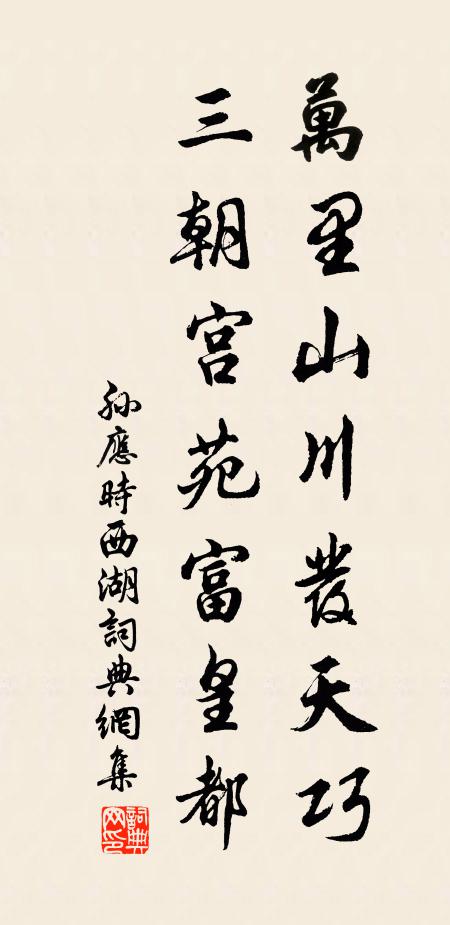 萬里山川發天巧
三朝宫苑富皇都
孫應時西湖詞典網集
詞典網印